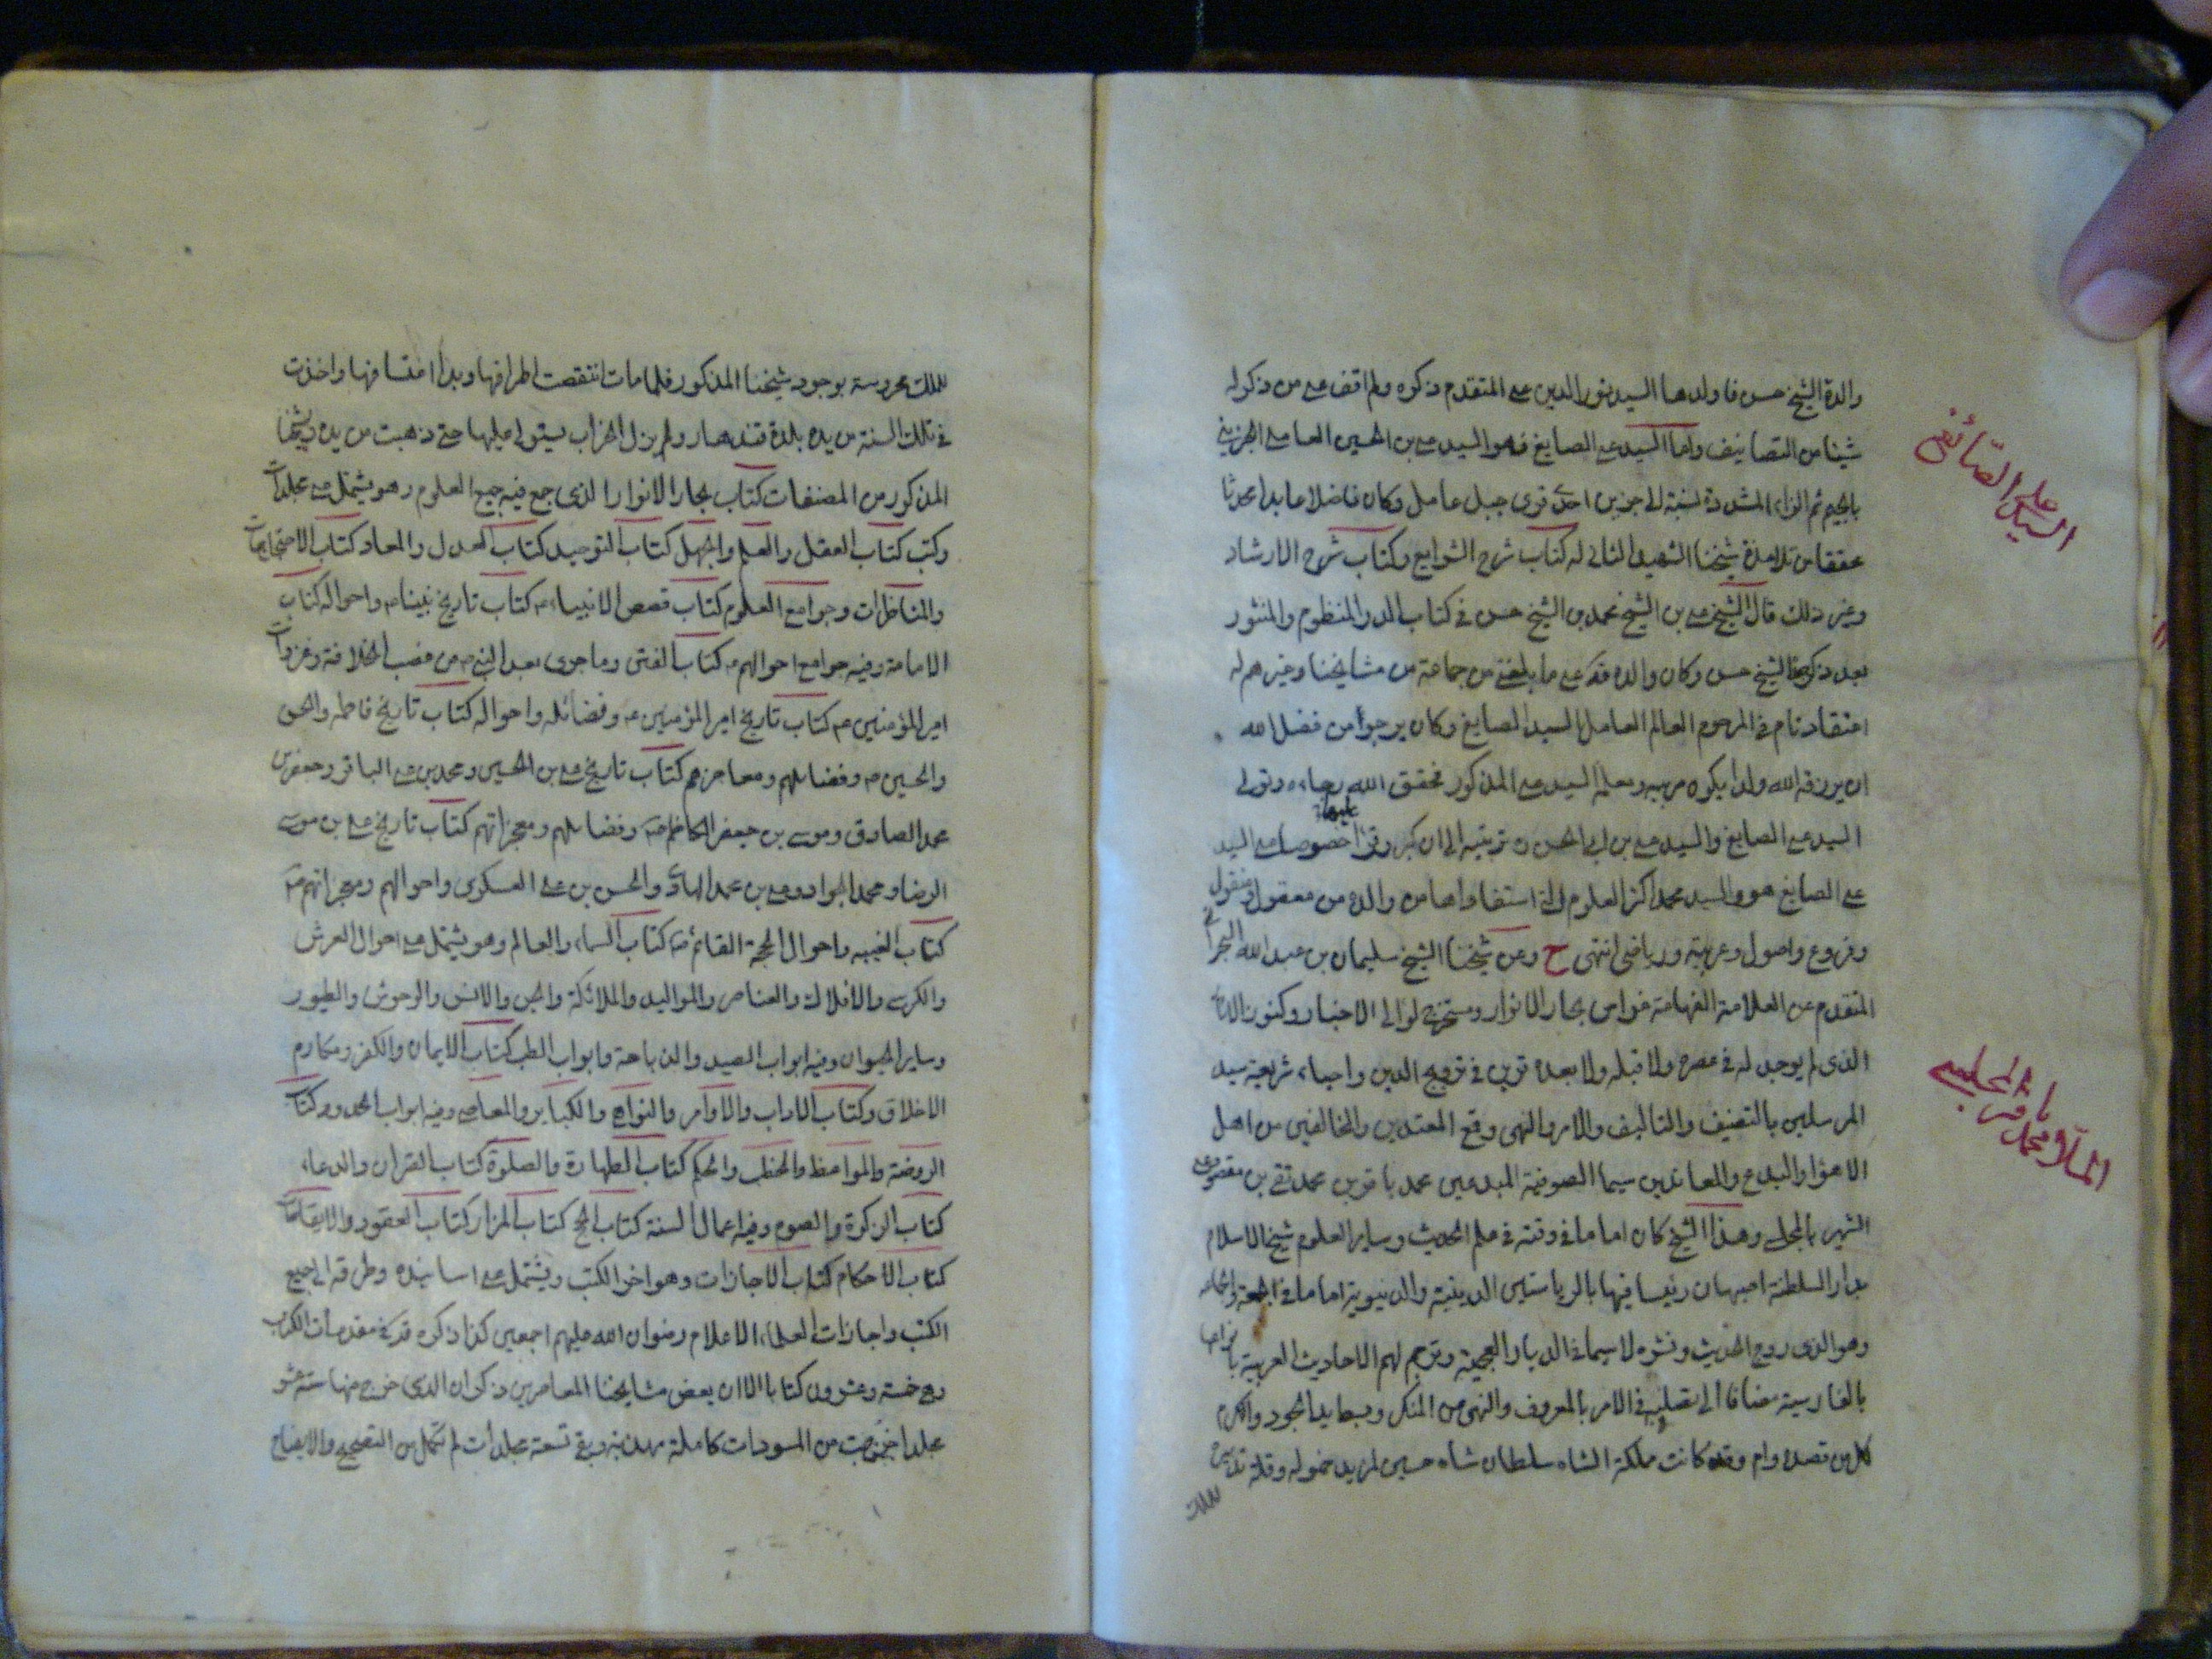 والدة الشيخ حسن فاولدها السيد نور الدين علي المتقدم ذكره ولم اقف على من ذكر له
شيئا من التصانيف واما السيد علي الصايغ فهو السيد علي بن الحسين العاملي الجزيني
بالجيم ثم الزاء المشددة نسبة الى جزين احدى قرى جبل عامل وكان فاضلا عابدا محدثا
محققا من تلامذة شيخنا الشهيد الثاني له كتاب شرح الشرايع وكتاب شرح الارشاد
وغير ذلك قال الشيخ علي بن الشيخ محمد بن الشيخ حسن في كتاب الدر المنظوم والمنثور
بعد ذكر جده الشيخ حسن وكان والده قده على ما بلغني من جماعة من مشايخنا وغيرهم له
اعتقاد تام في المرحوم العالم العامل السيد علي الصايغ وكان يرجوا من فضل الله
ان يرزقه الله ولدا يكون مربيه ومعلمه السيد علي المذكور فحقق الله رجاءه وتولى
السيد علي الصايغ والسيد علي بن ابي الحسن ره تربيته الى ان كبر وقرأ عليهما خصوصا على السيد
علي الصايغ هو والسيد محمد اكثر العلوم التي استفاداها من والده من معقول ومنقول
وفروع واصول وعربية ورياضي انتهى ح وعن شيخنا الشيخ سليمان بن عبد الله البحراني
المتقدم عن العلامة الفهامة غواص بحار الانوار ومستخرج لؤالي الاخبار وكنوز الاثار
الذى لم يوجد له في عصره ولا قبله ولا بعده قرين في ترويج الدين واحياء شريعة سيد
المرسلين بالتصنيف والتاليف والامر والنهى وقمع المعتدين والمخالفين من اهل
الاهوا والبدع والمعاندين سيما الصوفية المبدعين محمد باقر بن محمد تقي بن مقصود علي
الشهير بالمجلسي وهذا الشيخ كان اماما في وقته في علم الحديث وساير العلوم شيخ الاسلام
بدار السلطنة اصبهان رئيسا فيها بالرياستين الدينية والدنيوية اماما في الجمعة والجماعة
وهو الذى روج الحديث ونشره لا سيما في الديار العجمية وترجم لهم الاحاديث العربية بانواعها
بالفارسية مضافا الى تصلبه في الامر بالمعروف والنهى عن المنكر وبسط يد الجود والكرم
لكل من قصده وام وقد كانت مملكة الشاه سلطان شاه حسين لمزيد خموله وقلة تدبيره
للملك
السيد علي الصّائغ
الملا محمد باقر المجلسي
للملك محروسة بوجود شيخنا المذكور فلما مات انتقصت اطرافها وبدا اعتسافها واخذت
في تلك السنة من يده بلدة قندهار ولم يزل الخراب يستولى عليها حتى ذهبت من يده ولشيخنا
المذكور من المصنفات كتاب بحار الانوار الذى جمع فيه جميع العلوم وهو يشتمل على مجلدات
وكتب كتاب العقل والعلم والجهل كتاب التوحيد كتاب العدل والمعاد كتاب الاحتجاجات
والمناظرات وجوامع العلوم كتاب قصص الانبياء ع كتاب تاريخ نبينا ص واحواله كتاب
الامامة وفيه جوامع احوالهم ع كتاب الفتن وما جرى بعد النبي ص من غصب الخلافة وغزوات
امير المؤمنين ع كتاب تاريخ امير المؤمنين ع وفضائله واحواله كتاب تاريخ فاطمة والحسن
والحسين ع وفضايلهم ومعاجزهم كتاب تاريخ علي بن الحسين ومحمد بن علي الباقر وجعفر بن
محمد الصادق وموسى بن جعفر الكاظم ع وفضايلهم ومعجزاتهم كتاب تاريخ علي بن موسى
الرضا ومحمد الجواد وعلي بن محمد الهادى والحسن بن علي العسكرى واحوالهم ومعجزاتهم ع
كتاب الغيبه واحوال الحجة القائم ع كتاب السماء والعالم وهو يشتمل على احوال العرش
والكرسي والافلاك والعناصر والمواليد والملائكة والجن والانس والوحوش والطيور
وساير الحيوان وفيه ابواب الصيد والذباحة وابواب الطب كتاب الايمان والكفر ومكارم
الاخلاق وكتاب الاداب والاوامر والنواهي والكباير والمعاصي وفيه ابواب الحدود كتاب
الروضة والمواعظ والخطب والحكم كتاب الطهارة والصلوة كتاب القران والدعاء
كتاب الزكوة والصوم وفيه اعمال السنة كتاب الحج كتاب المزار كتاب العقود والايقاعات
كتاب الاحكام كتاب الاجازات وهو اخر الكتب ويشتمل على اسانيده وطرقه الى جميع
الكتب واجازات العلماء الاعلام رضوان الله عليهم اجمعين كذا ذكره قده في مقدمات الكتاب
وهي خمسة وعشرون كتابا الا ان بعض مشايخنا المعاصرين ذكر ان الذى خرج منها ستة عشر
مجلدا خرجت من المسودات كاملة مهذبة وبقي تسعة مجلدات لم تكمل من التصحيح والايضاح